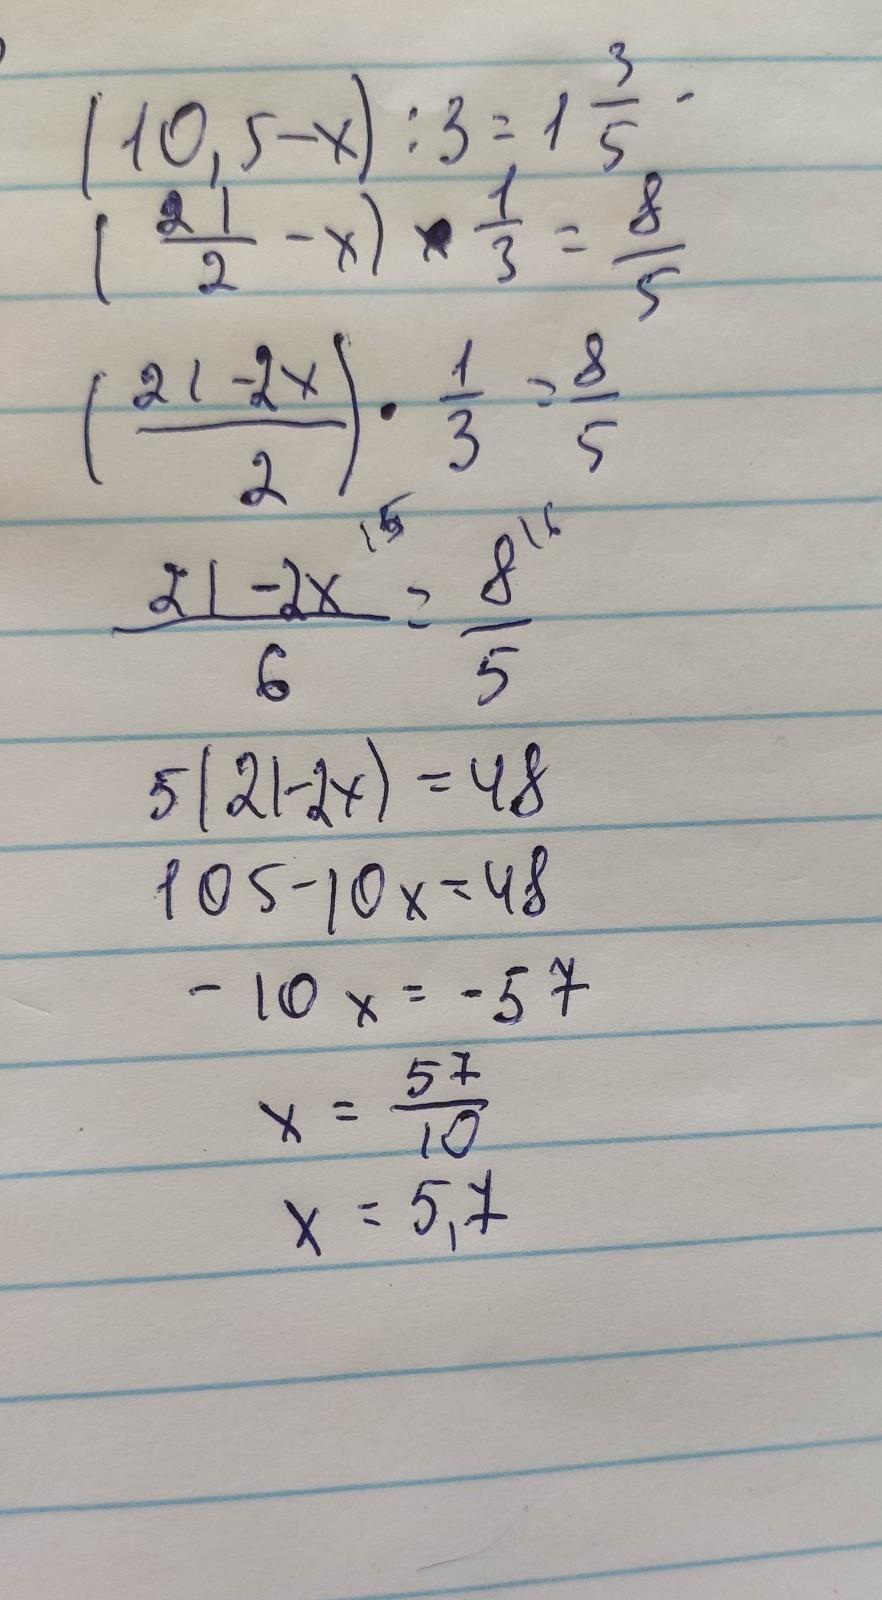 (10,5-x):3=1 3/5
(21/2 -x)·1/3=8/5
(21-2x/2)·1/3=8/5
21-2x/6 |5 = 8/5 |6
5(21-2x)=48
105-10x=48
-10x=-57
x=57/10
x=5,7